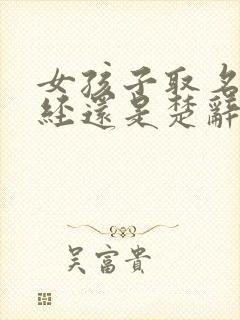 女孩子取名
經還是楚辭
吳富貴